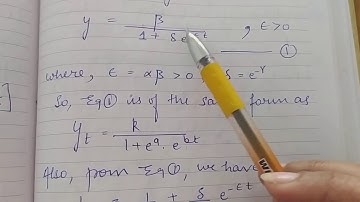 y = β / 1 + δ e^-εt , ε>0
①
where, ε = αβ > 0 δ = e^-γ
So, Eq ① is of the same form as
y_t = k / 1 + e^a . e^bt
Also, from Eq ①, we have
1 + δ e^-εt